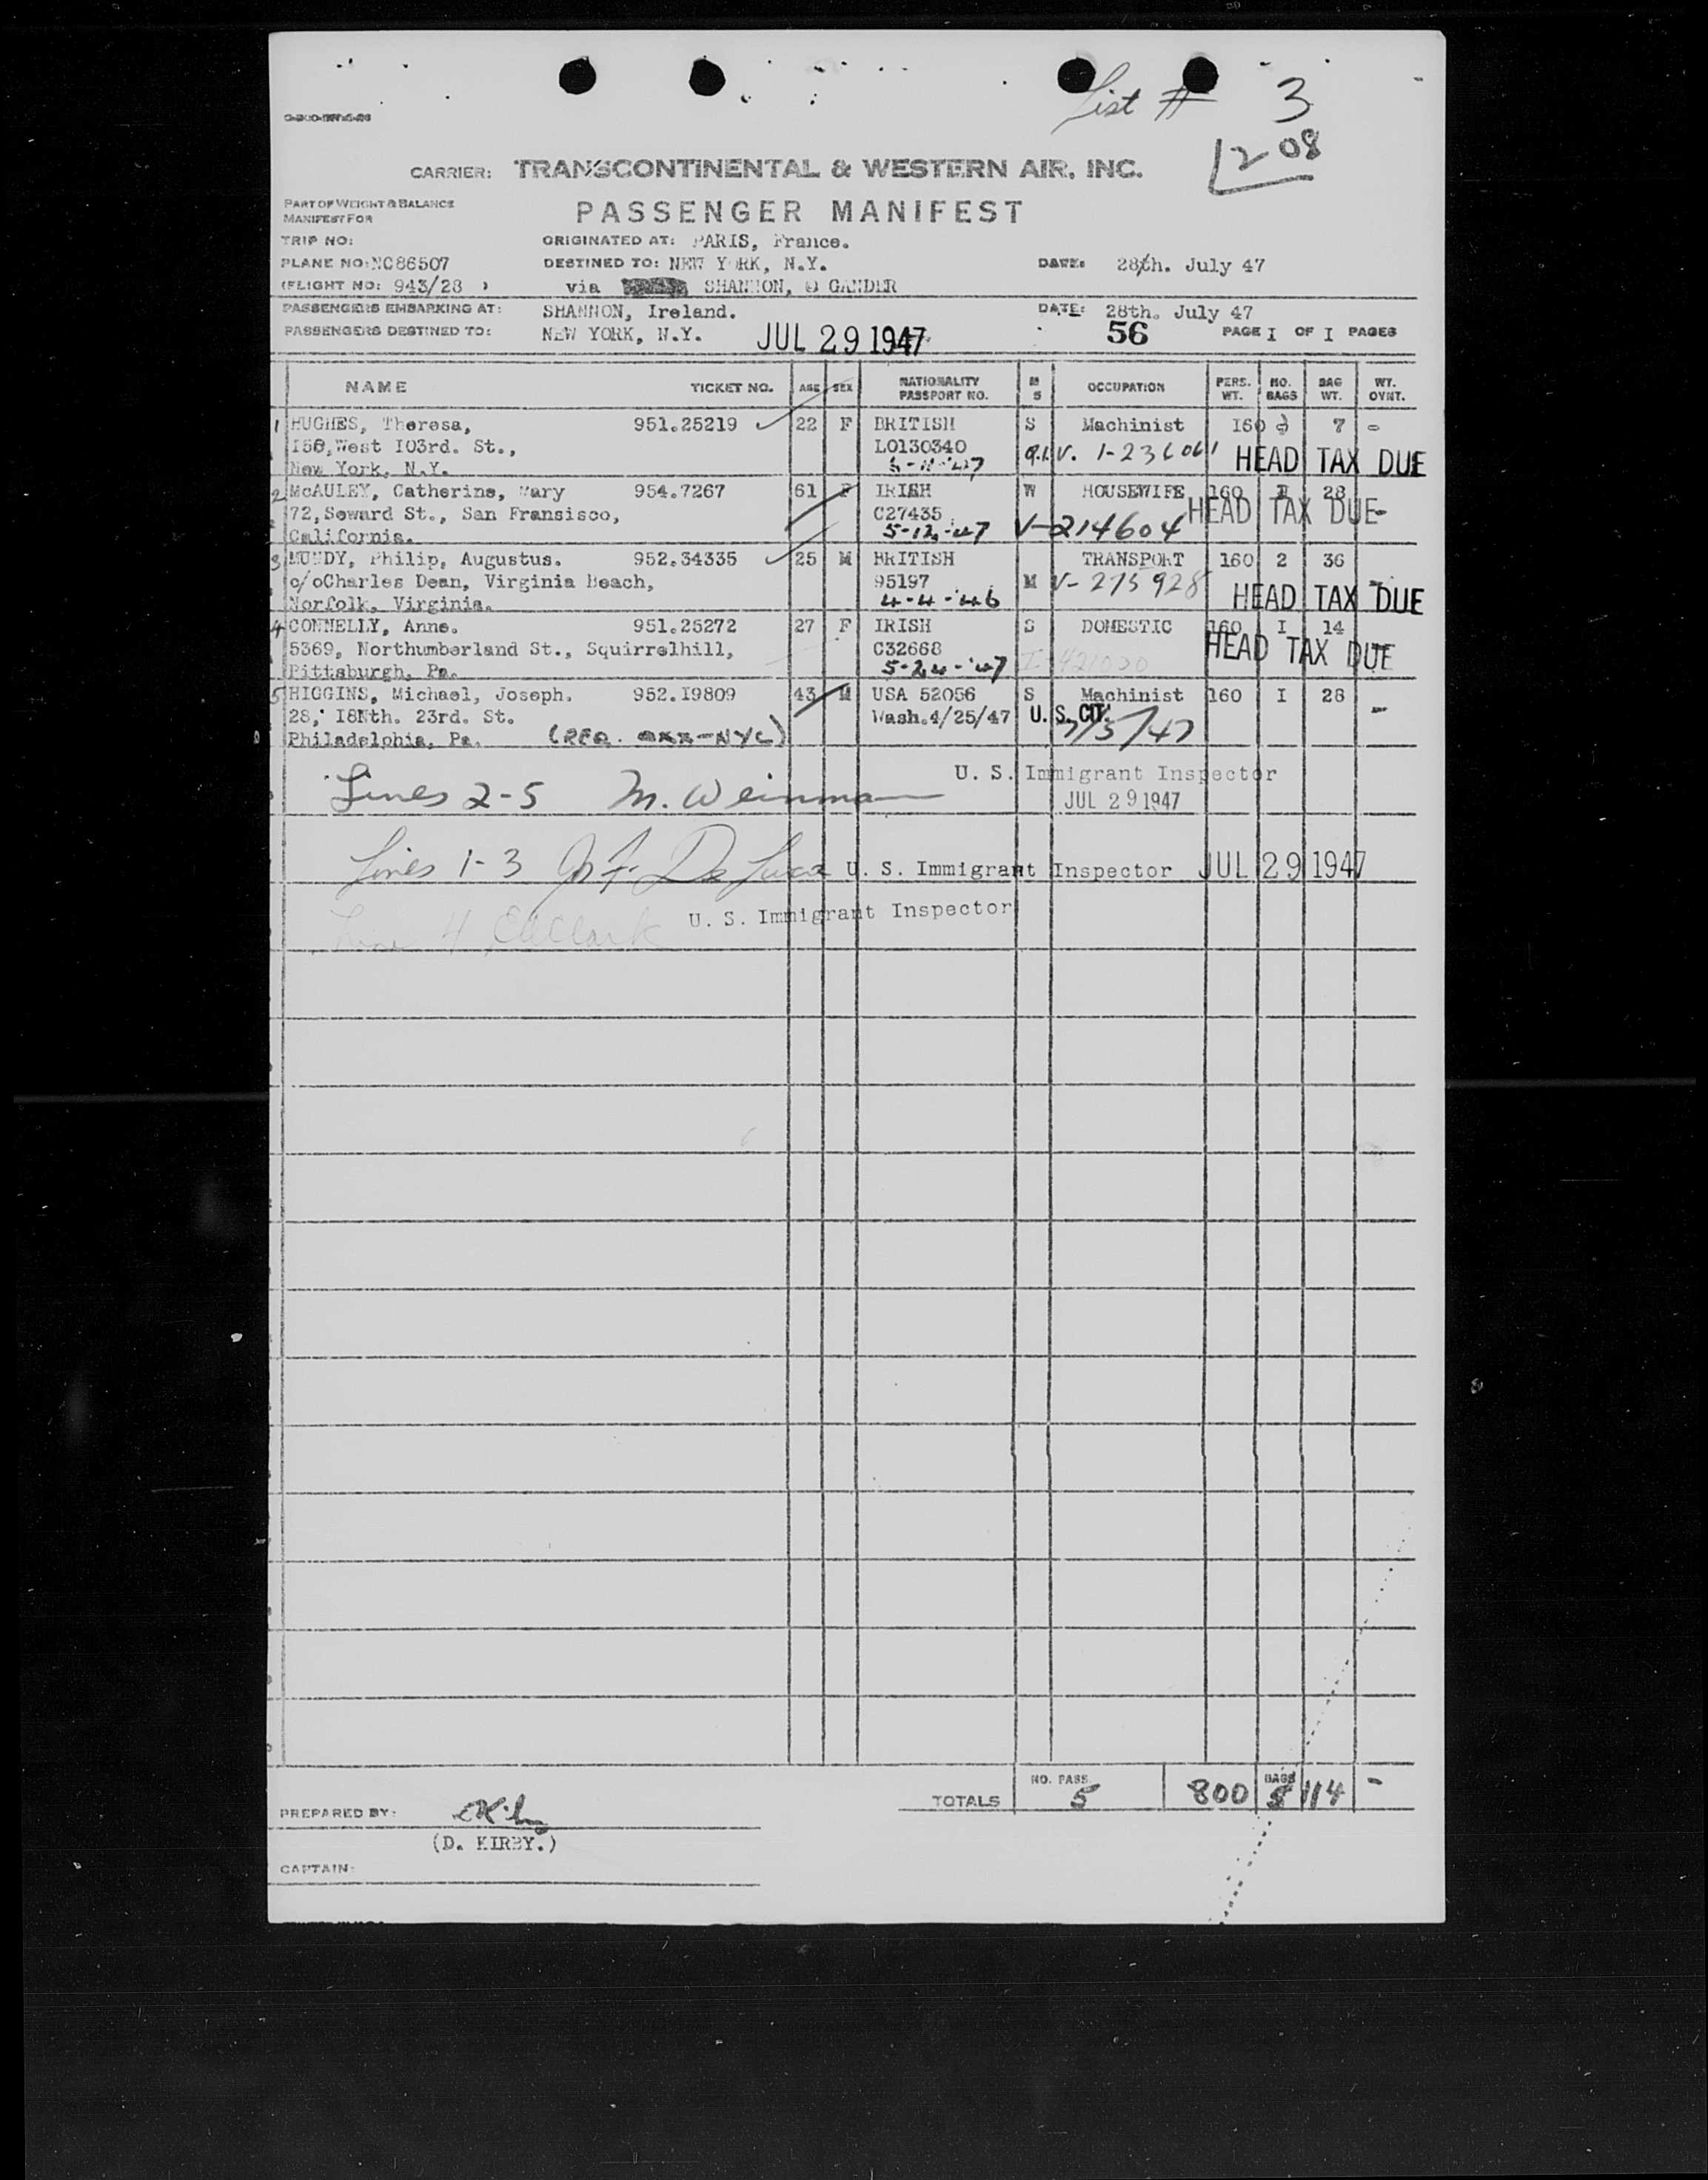 List # 3
1208
CARRIER: TRANSCONTINENTAL & WESTERN AIR, INC.
PART OF WEIGHT & BALANCE
MANIFEST FOR
PASSENGER MANIFEST
TRIP NO:
ORIGINATED AT: PARIS, France.
PLANE NO: NC86507
DESTINED TO: NEW YORK, N.Y.
DATE: 28th. July 47
(FLIGHT NO: 943/28 )
via SHANNON, GANDER
PASSENGERS EMBARKING AT: SHANNON, Ireland.
DATE: 28th. July 47
PASSENGERS DESTINED TO: NEW YORK, N.Y.
JUL 29 1947
56
PAGE I OF I PAGES
NAME TICKET NO. AGE SEX NATIONALITY PASSPORT NO. M S OCCUPATION PERS. WT. NO. BAGS BAG WT. WT. OVNT.
1 HUGHES, Theresa, 951.25219 22 F BRITISH S Machinist 160 7 -
West I03rd. St., L0130340 V. 1-236061 HEAD TAX DUE
New York, N.Y.
2 McAULEY, Catherine, Mary 954.7267 61 F IRISH W HOUSEWIFE 160 28
72,Seward St., San Fransisco, C27435 HEAD TAX DUE -
California. 5-12-47 V-214604
3 MUNDY, Philip, Augustus. 952.34335 25 M BRITISH TRANSPORT 160 2 36
c/oCharles Dean, Virginia Beach, 95197 M V-275928 -
Norfolk, Virginia. 4-4-46 HEAD TAX DUE
4 CONNELLY, Anne. 951.25272 27 F IRISH S DOMESTIC 160 I 14
5369, Northumberland St., Squirrelhill, C32668 HEAD TAX DUE
Pittsburgh, Pa. 5-24-'47
5 HIGGINS, Michael, Joseph. 952.I9809 43 M USA 52056 S Machinist 160 I 28
28, I8Nth. 23rd. St. Wash.4/25/47 U. S. CIT. -
Philadelphia, Pa. 7/5/47
U. S. Immigrant Inspector
Lines 2-5 M. Weinman
JUL 29 1947
Lines 1-3 De Luca U. S. Immigrant Inspector JUL 29 1947
Line 4 Clark U. S. Immigrant Inspector
NO. PASS. BAGS
TOTALS 5 800 114 -
PREPARED BY:
(D. KIRBY.)
CAPTAIN: